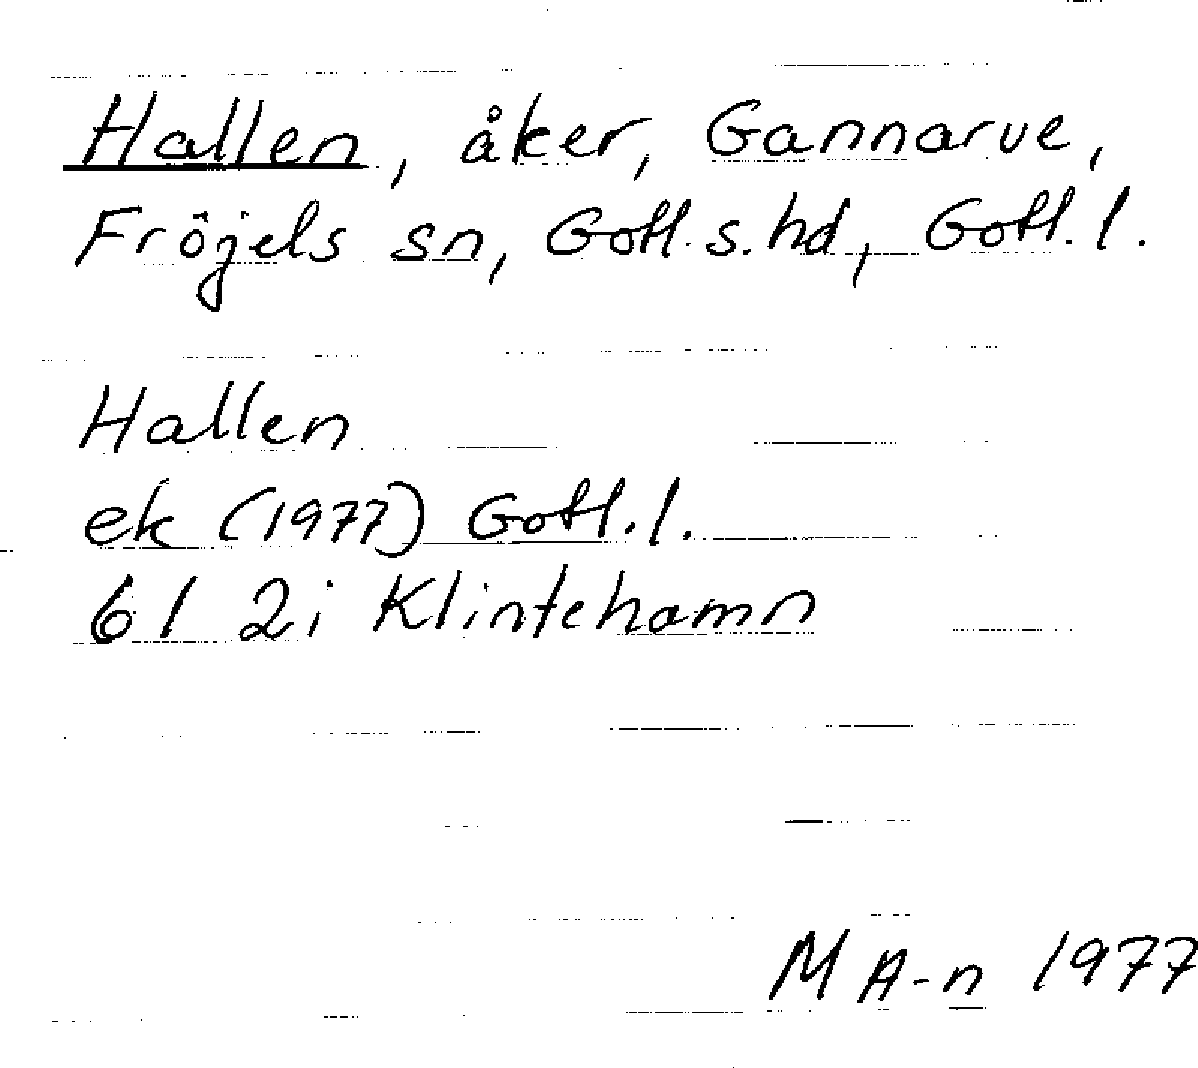 Hallen, åker, Gannarve,
Fröjels sn, Gotl. s. hd, Gotl. l.
Hallen
ek (1977) Gotl. l.
6 I 2i Klintehamn
M A-n 1977